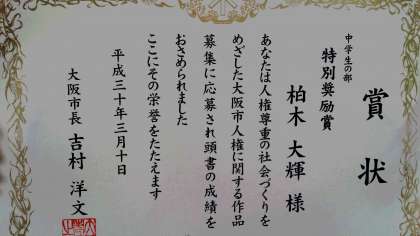 賞状
中学生の部
特別奨励賞
柏木 大輝 様
あなたは人権尊重の社会づくりを
めざした大阪市人権に関する作品
募集に応募され頭書の成績を
おさめられました
ここにその栄誉をたたえます
平成三十年三月十日
大阪市長 吉村 洋文